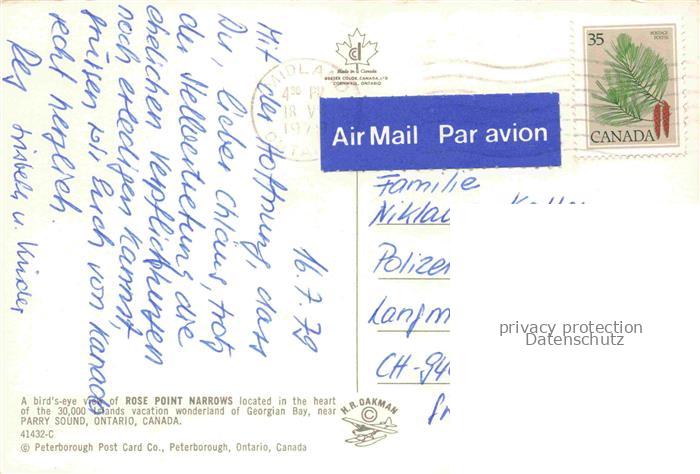 16.7.79
Mit der Hoffnung, dass
Du, lieber Chlaus, trotz
der Stellvertretung die
ehelichen Verpflichtungen
noch erledigen kannst,
grüssen wir Euch von Kanada
recht herzlich.
Reg u. Kinder
Made in Canada
BORDER COLOR, CANADA, LTD
CORNWALL, ONTARIO
MIDLA
4 30 PM
18 V
197
35
POSTAGE
POSTES
CANADA
Air Mail Par avion
Familie
Niklau
Polizei
Langm
CH-940
privacy protection
Datenschutz
A bird's-eye view of ROSE POINT NARROWS located in the heart
of the 30,000 Islands vacation wonderland of Georgian Bay, near
PARRY SOUND, ONTARIO, CANADA.
41432-C
© Peterborough Post Card Co., Peterborough, Ontario, Canada
H.R. OAKMAN
©